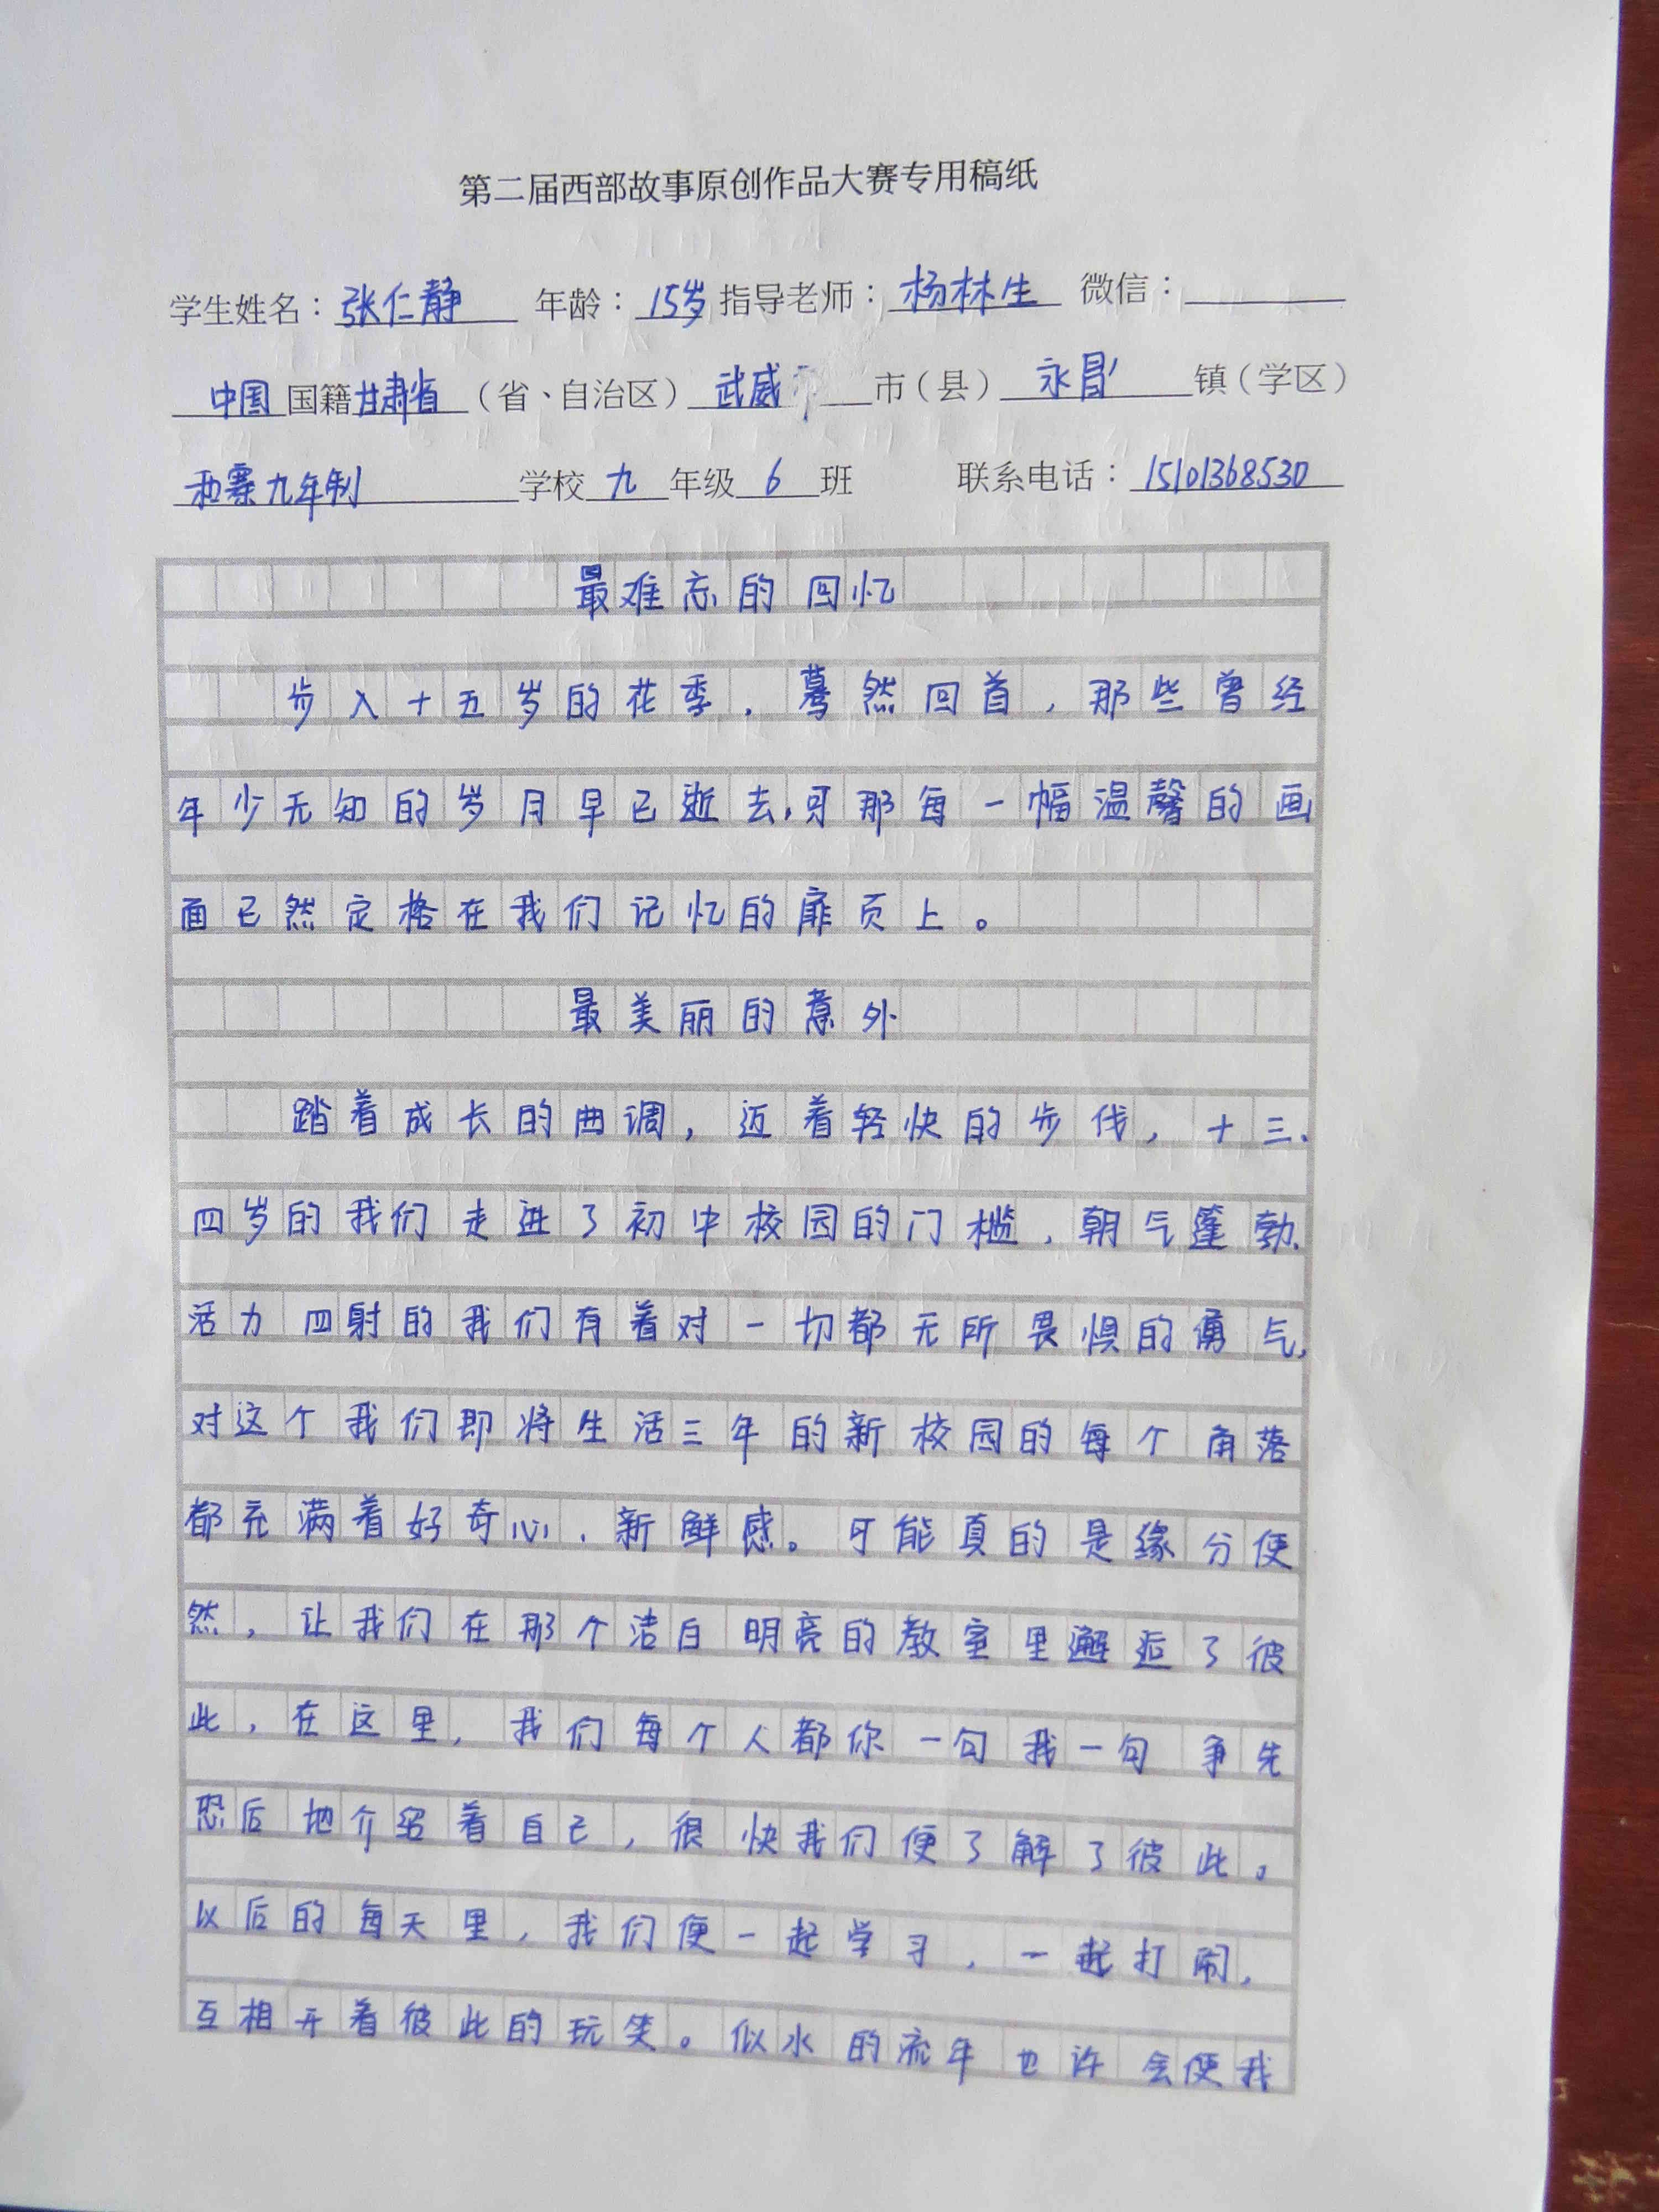 第二届西部故事原创作品大赛专用稿纸
学生姓名：张仁静 年龄：15岁 指导老师：杨林生 微信：
中国国籍甘肃省（省、自治区）武威市（县）永昌镇（学区）
和寨九年制学校九年级6班 联系电话：15101368530
最难忘的回忆
步入十五岁的花季，蓦然回首，那些曾经
年少无知的岁月早已逝去，可那每一幅温馨的画
面已然定格在我们记忆的扉页上。
最美丽的意外
踏着成长的曲调，迈着轻快的步伐，十三、
四岁的我们走进了初中校园的门槛，朝气蓬勃、
活力四射的我们有着对一切都无所畏惧的勇气，
对这个我们即将生活三年的新校园的每个角落
都充满着好奇心、新鲜感。可能真的是缘分使
然，让我们在那个洁白明亮的教室里邂逅了彼
此，在这里，我们每个人都你一句我一句争先
恐后地介绍着自己，很快我们便了解了彼此。
以后的每天里，我们便一起学习，一起打闹，
互相开着彼此的玩笑。似水的流年也许会使我